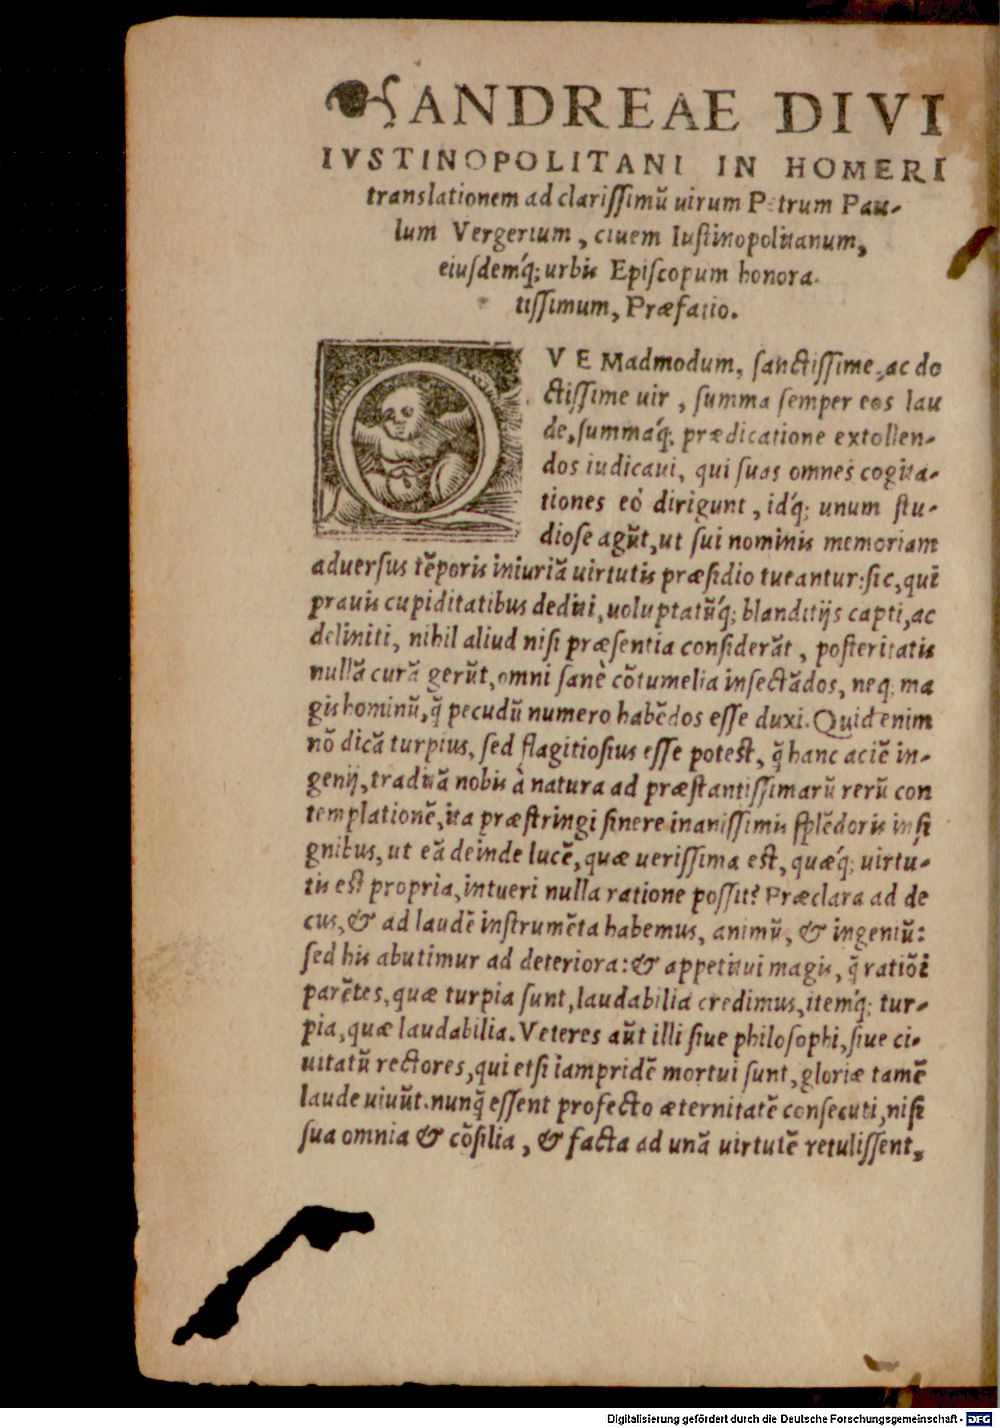 ❧ ANDREAE DIVI
IVSTINOPOLITANI IN HOMERI
translationem ad clarissimũ uirum Petrum Pau-
lum Vergerium, ciuem Iustinopolitanum,
eiusdemq́; urbis Episcopum honora
tissimum, Præfatio.
QVEMadmodum, sanctissime, ac do
ctissime uir, summa semper eos lau
de, summaq́; prædicatione extollen-
dos iudicaui, qui suas omnes cogita-
tiones eò dirigunt, idq́; unum stu-
diose agũt, ut sui nominis memoriam
aduersus tẽporis iniuriã uirtutis præsidio tueantur: sic, qui
prauis cupiditatibus dediti, uoluptatũq́; blanditijs capti, ac
deliniti, nihil aliud nisi præsentia considerãt, posteritatis
nullã curã gerũt, omni sanè cõtumelia insectãdos, neq; ma
gis hominũ, q̃ pecudũ numero habẽdos esse duxi. Quid enim
nõ dicã turpius, sed flagitiosius esse potest, q̃ hanc aciẽ in-
genij, traditã nobis à natura ad præstantissimarũ rerũ con
templationẽ, ita præstringi sinere inanissimis splẽdoris insi
gnibus, ut eã deinde lucẽ, quæ uerissima est, quæq́; uirtu-
tis est propria, intueri nulla ratione possit? Præclara ad de
cus, & ad laudẽ instrumẽta habemus, animũ, & ingeniũ:
sed his abutimur ad deteriora: & appetitui magis, q̃ ratiõi
parẽtes, quæ turpia sunt, laudabilia credimus, itemq́; tur-
pia, quæ laudabilia. Veteres aũt illi siue philosophi, siue ci-
uitatũ rectores, qui etsi iampridẽ mortui sunt, gloriæ tamẽ
laude uiuũt. nunq̃ essent profecto æternitatẽ consecuti, nisi
sua omnia & cõsilia, & facta ad unã uirtutẽ retulissent,
Digitalisierung gefördert durch die Deutsche Forschungsgemeinschaft - DFG